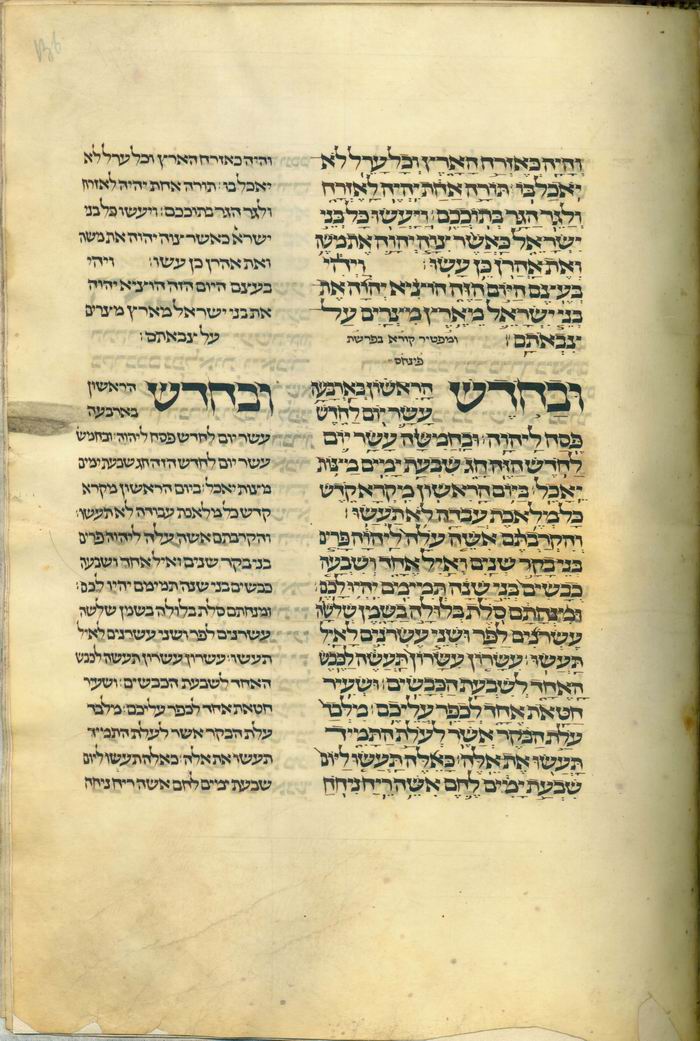 והיה כאזרח הארץ וכל ערל לא
יאכל בו׃ תורה אחת יהיה לאזרח
ולגר הגר בתוככם׃ ויעשו כל בני
ישראל כאשר צוה יהוה את משה
ואת אהרן כן עשו׃ ויהי
בעצם היום הזה הוציא יהוה את
בני ישראל מארץ מצרים על
צבאתם׃ ומפטיר קורא בפרשת
פינחס
ובחדש הראשון בארבעה
עשר יום לחדש
פסח ליהוה׃ ובחמשה עשר יום
לחדש הזה חג שבעת ימים מצות
יאכל׃ ביום הראשון מקרא קדש
כל מלאכת עבדה לא תעשו׃
והקרבתם אשה עלה ליהוה פרים
בני בקר שנים ואיל אחד ושבעה
כבשים בני שנה תמימים יהיו לכם׃
ומנחתם סלת בלולה בשמן שלשה
עשרנים לפר ושני עשרנים לאיל
תעשו׃ עשרון עשרון תעשה לכבש
האחד לשבעת הכבשים׃ ושעיר
חטאת אחד לכפר עליכם׃ מלבד
עלת הבקר אשר לעלת התמיד
תעשו את אלה׃ כאלה תעשו ליום
שבעת ימים לחם אשה ריח ניחח
והיה כאזרח הארץ וכל ערל לא
יאכל בו׃ תורה אחת יהיה לאזרח
ולגר הגר בתוככם׃ ויעשו כל בני
ישרא כאשר צוה יהוה את משה
ואת אהרן כן עשו׃ ויהי
בעצם היום הזה הוציא יהוה
את בני ישראל מארץ מצרים
על צבאתם׃
ובחדש הראשון
בארבעה
עשר יום לחדש פסח ליהוה׃ ובחמש
עשר יום לחדש הזה חג שבעת ימים
מצות יאכל׃ ביום הראשון מקרא
קדש כל מלאכת עבודה לא תעשו׃
והקרבתם אשה עלה ליהוה פרים
בני בקר שנים ואיל אחד ושבעה
כבשים בני שנה תמימם יהיו לכם׃
ומנחתם סלת בלולה בשמן שלשה
עשרנים לפר ושני עשרנים לאיל
תעשו׃ עשרון עשרון תעשה לכבש
האחד לשבעת הכבשים׃ ושעיר
חטאת אחד לכפר עליכם׃ מלבד
עלת הבקר אשר לעלת התמיד
תעשו את אלה׃ כאלה תעשו ליום
שבעת ימים לחם אשה ריח ניחח